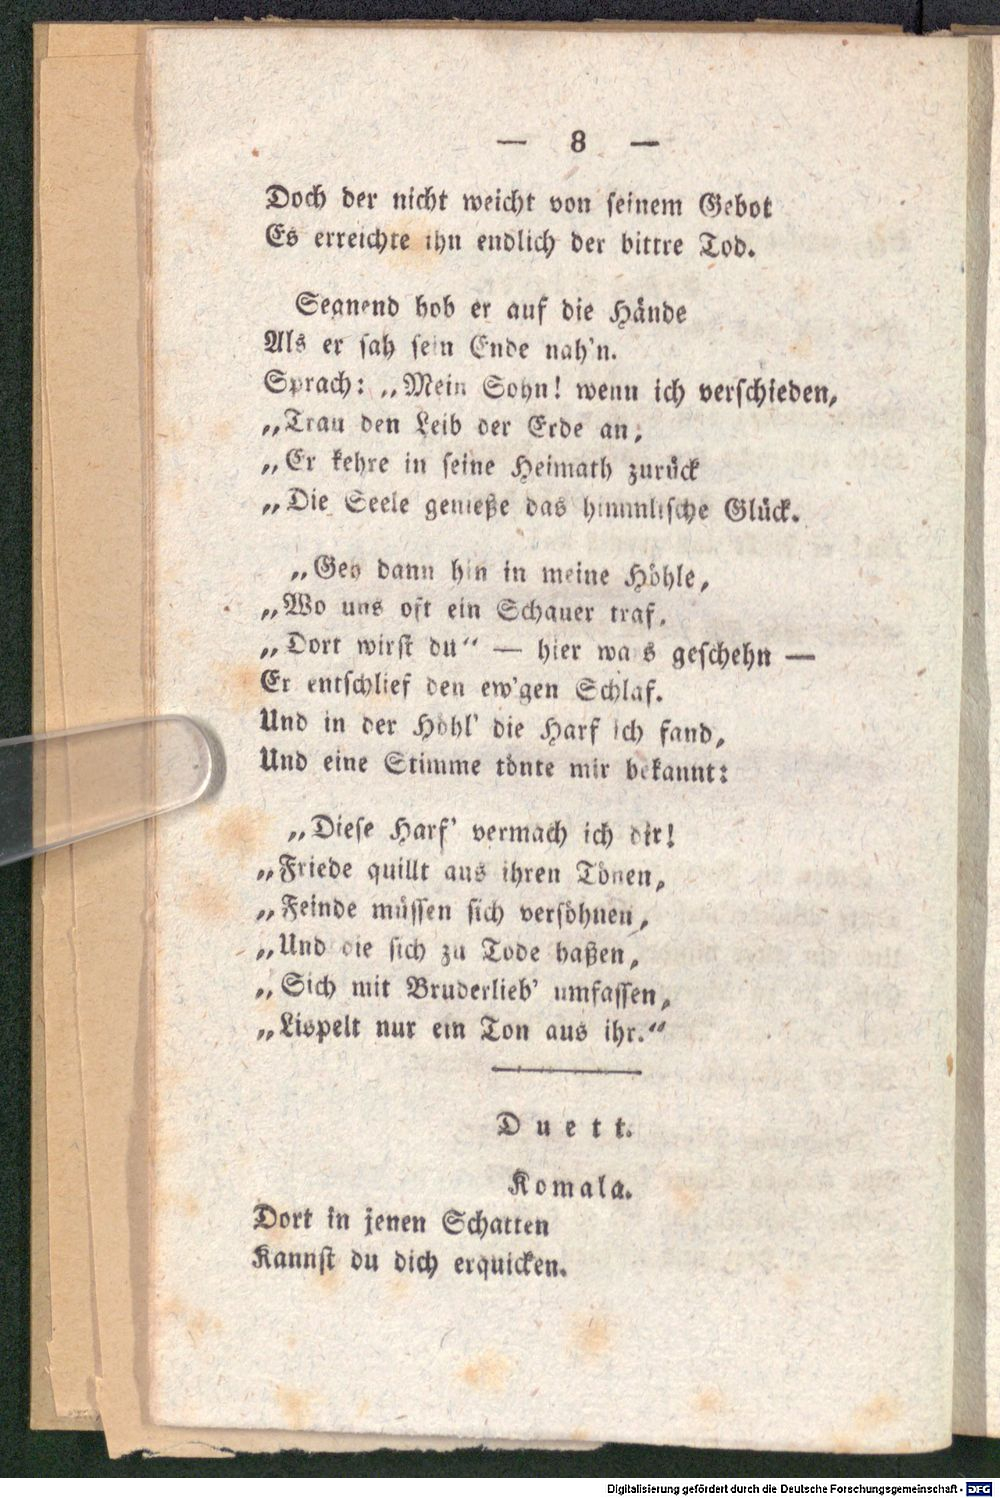 — 8 —
Doch der nicht weicht von seinem Gebot
Es erreichte ihn endlich der bittre Tod.
Segnend hob er auf die Hände
Als er sah sein Ende nah'n.
Sprach: „Mein Sohn! wenn ich verschieden,
„Trau den Leib der Erde an,
„Er kehre in seine Heimath zurück
„Die Seele genieße das himmlische Glück.
„Gey dann hin in meine Höhle,
„Wo uns oft ein Schauer traf,
„Dort wirst du“ — hier wa s geschehn —
Er entschlief den ew'gen Schlaf.
Und in der Höhl' die Harf ich fand,
Und eine Stimme tönte mir bekannt:
„Diese Harf' vermach ich dir!
„Friede quillt aus ihren Tönen,
„Feinde müssen sich versöhnen,
„Und die sich zu Tode haßen,
„Sich mit Bruderlieb' umfassen,
„Lispelt nur ein Ton aus ihr.“
Duett.
Komala.
Dort in jenen Schatten
Kannst du dich erquicken.
Digitalisierung gefördert durch die Deutsche Forschungsgemeinschaft - DFG